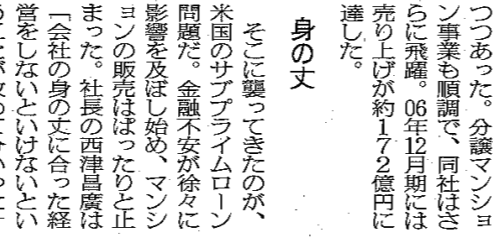 つつあった。分譲マンショ
ン事業も順調で、同社はさ
らに飛躍。06年12月期には
売り上げが約172億円に
達した。
身の丈
そこに襲ってきたのが、
米国のサブプライムローン
問題だ。金融不安が徐々に
影響を及ぼし始め、マンシ
ョンの販売はぱったりと止
まった。社長の西津昌廣は
「会社の身の丈に合った経
営をしないといけないとい